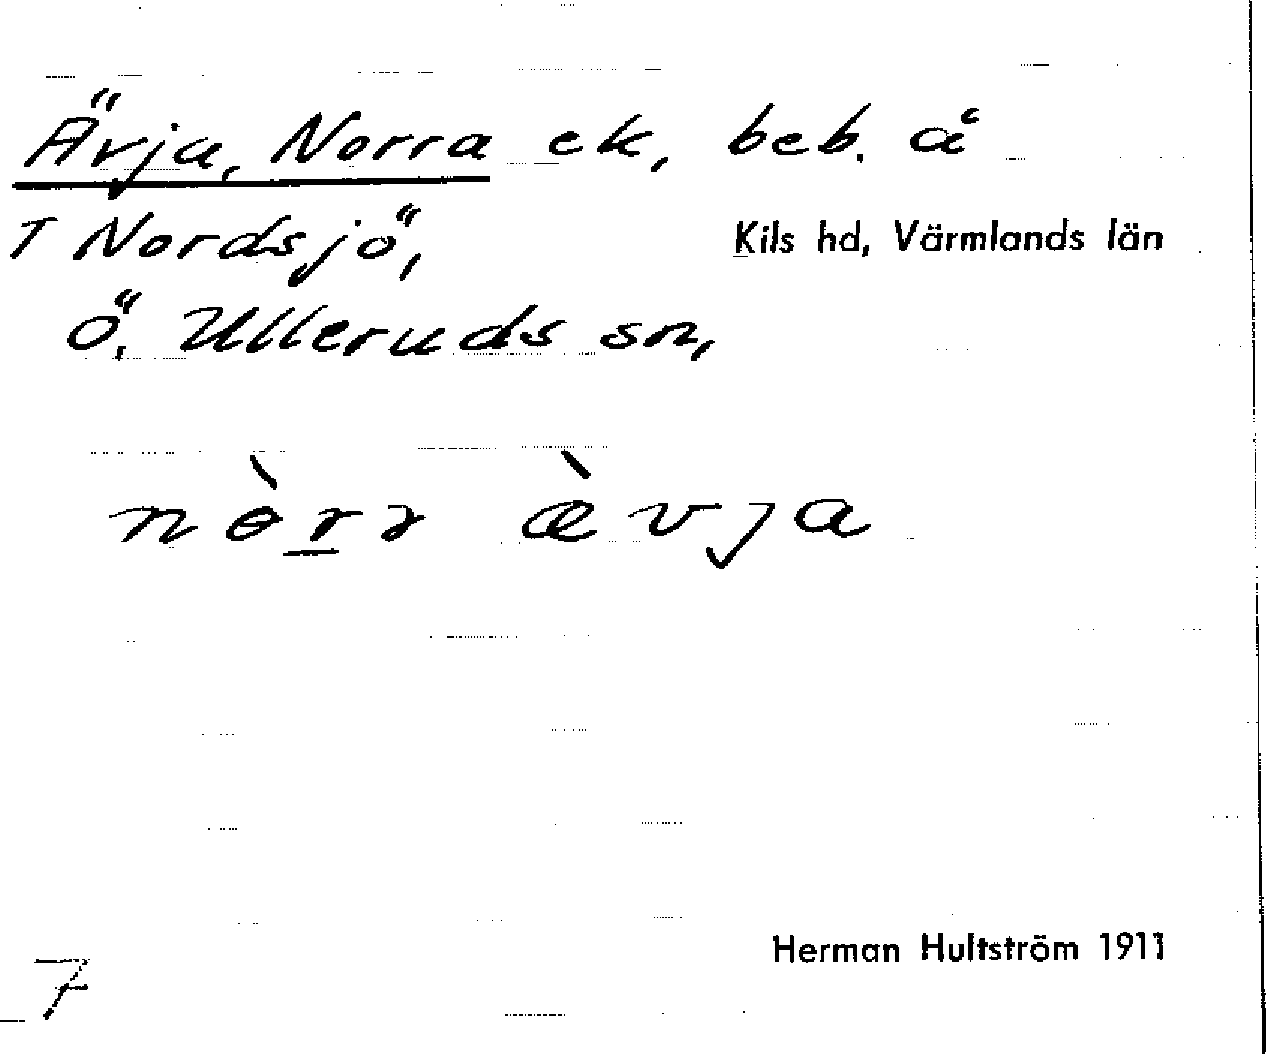 Ävja, Norra ek, beb. å
T Nordsjö, Kils hd, Värmlands län
Ö. Ulleruds sn,
nɵ̀r̲r æ̀vja
Herman Hultström 1911
7